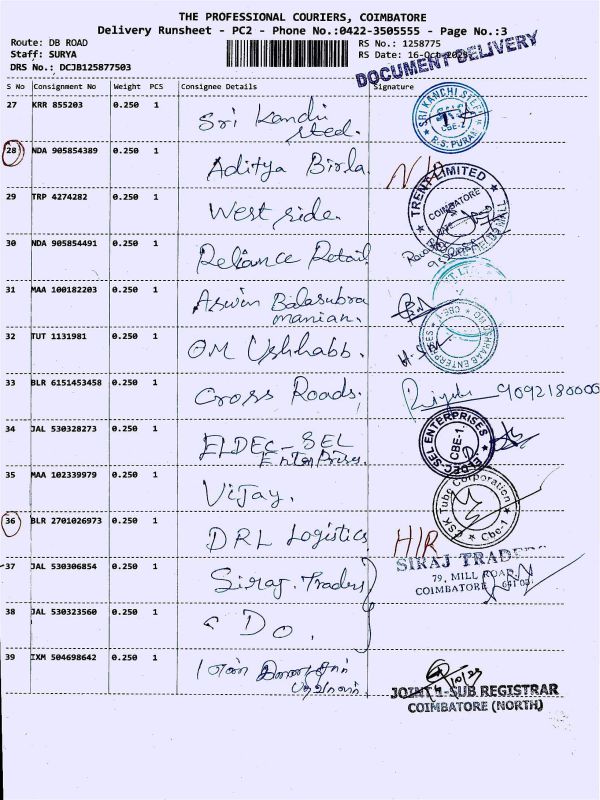 THE PROFESSIONAL COURIERS, COIMBATORE
Delivery Runsheet - PC2 - Phone No.:0422-3505555 - Page No.:3
Route: DB ROAD
RS No.: 1258775
Staff: SURYA
RS Date: 16-Oct
DRS No.: DCJB125877503
DOCUMENT DELIVERY
S No Consignment No Weight PCS Consignee Details Signature
27 KRR 855203 0.250 1 Sri Kanchi Steel. SRI KANCHI STEEL CBE-2 R.S. PURAM
28 NDA 905854389 0.250 1 Aditya Birla.
29 TRP 4274282 0.250 1 West side. TRENT LIMITED COIMBATORE
30 NDA 905854491 0.250 1 Reliance Retail
31 MAA 100182203 0.250 1 Aswin Balasubra
manian.
32 TUT 1131981 0.250 1 OM Ushhabb. ENTERPRISES CBE-1
33 BLR 6151453458 0.250 1 Cross Roads. 9092180000
34 JAL 530328273 0.250 1 ELDEC-SEL
Enterprises. ELDEC-SEL ENTERPRISES CBE-1
35 MAA 102339979 0.250 1 Vijay. SK Tube Corporation Cbe-1
36 BLR 2701026973 0.250 1 DRL Logistics H/R
37 JAL 530306854 0.250 1 Siraj. Traders SIRAJ TRADERS
79, MILL ROAD,
COIMBATORE
38 JAL 530323560 0.250 1 Do.
39 IXM 504698642 0.250 1
JOINT 1-SUB REGISTRAR
COIMBATORE (NORTH)